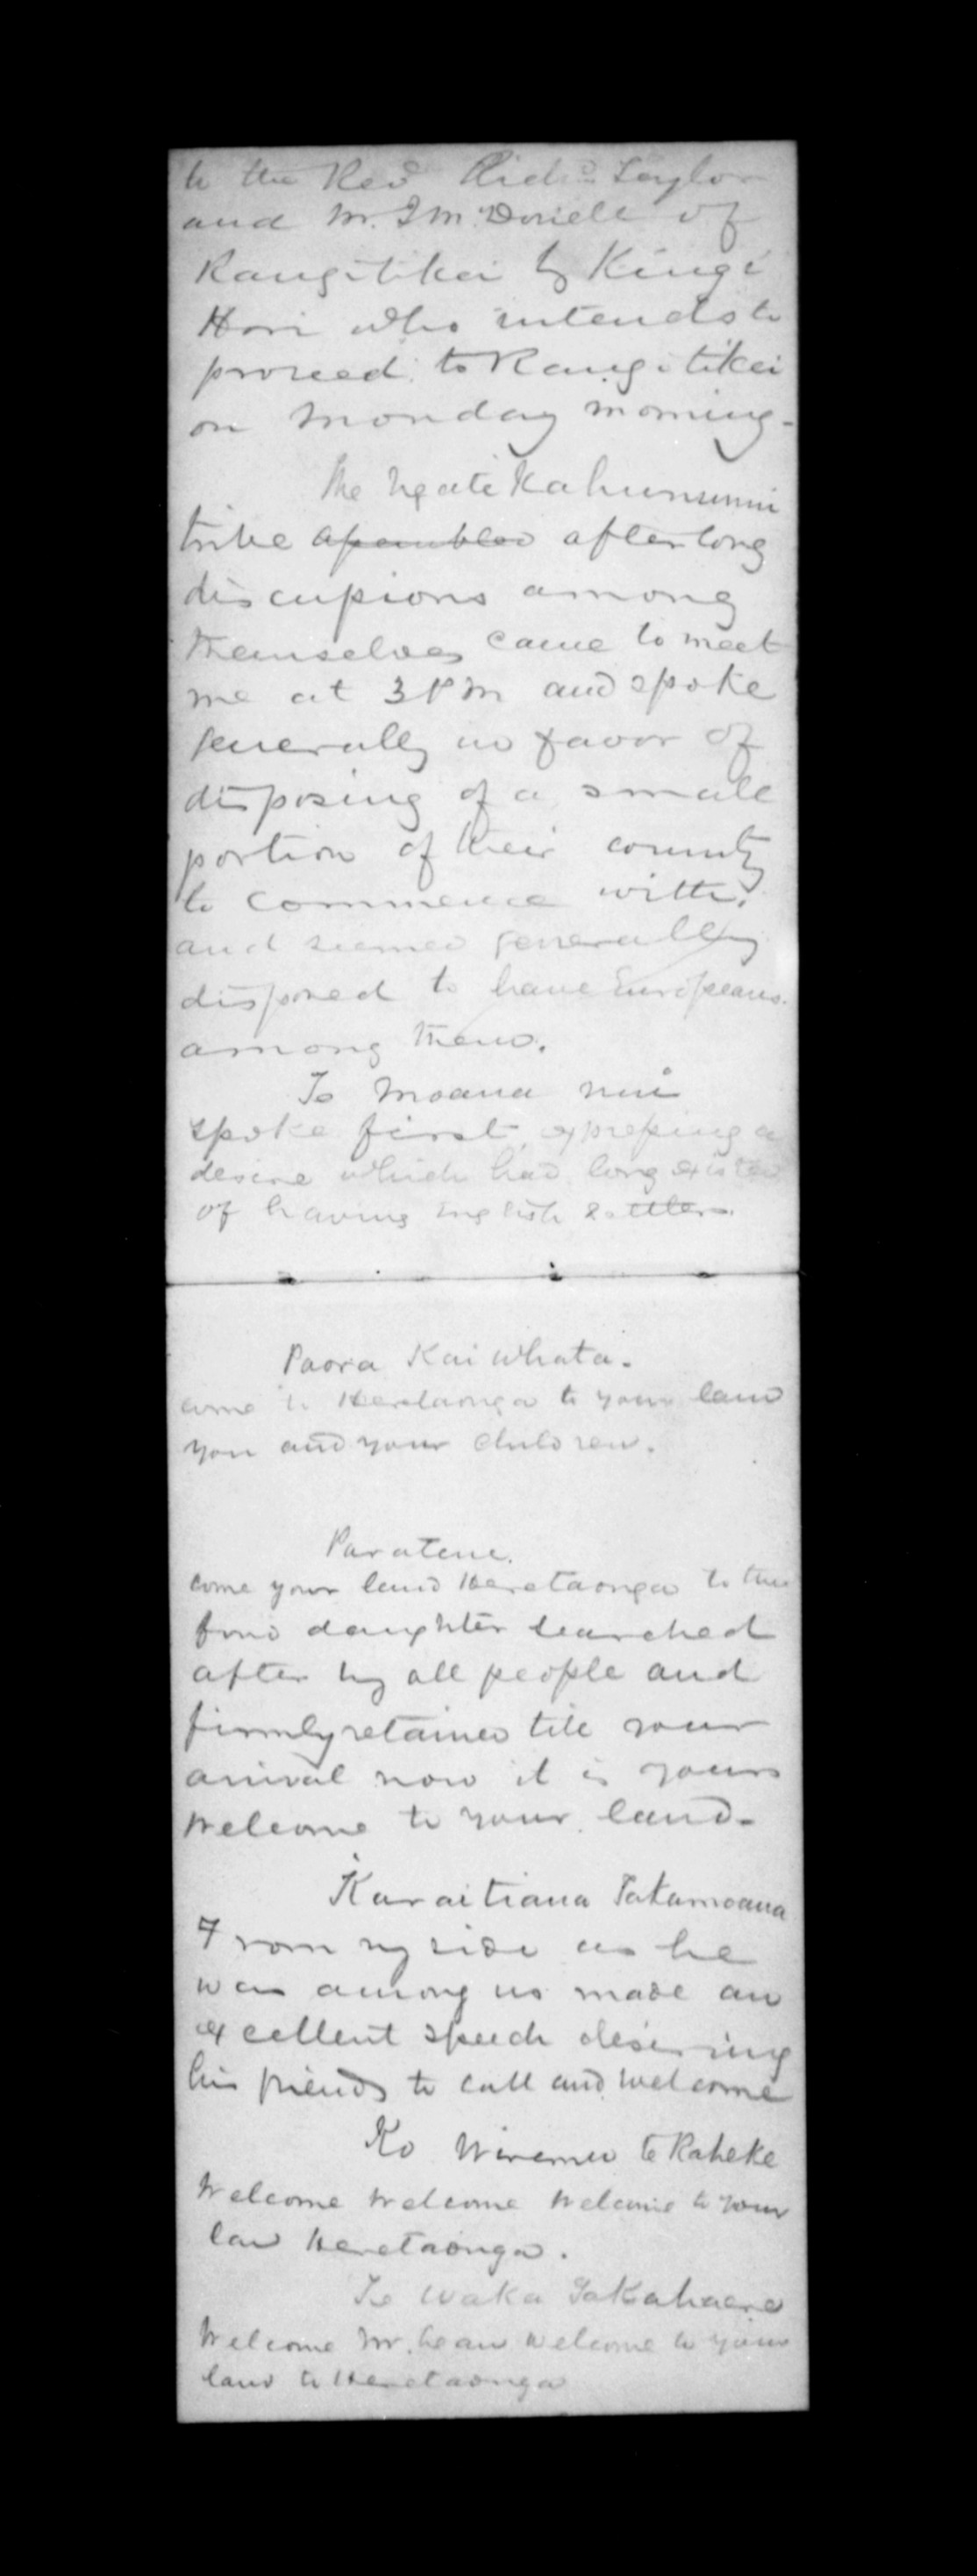 to the Revd Richd Taylor
and Mr. J McDonell of
Rangitikei by Kingi
Hori who intends to
proceed to Rangitikei
on Monday morning -
The Ngati Kahununu
tribe assembled after long
discussions among
themselves came to meet
me at 3 PM and spoke
generally in favor of
disposing of a small
portion of their country
to commence with.
and seemed generally
disposed to have Europeans
among them.
Te Moana nui
spoke first expressing a
desire which had long existed
of having English settlers.
Paora Kai whata.
come to Heretaonga to your land
you and your children.
Paratene.
come your land Heretaonga to the
fond daughter searched
after by all people and
firmly retained till your
arrival now it is yours
welcome to your land -
Karaitiana Takamoana
From my side as he
was among us made an
excellent speech desiring
his friends to call and welcome
Ko Wiremu te Raheke
Welcome welcome welcome to your
land Heretaonga.
Te Waka Takahaere
Welcome Mr. Lean welcome to your
land to Heretaonga